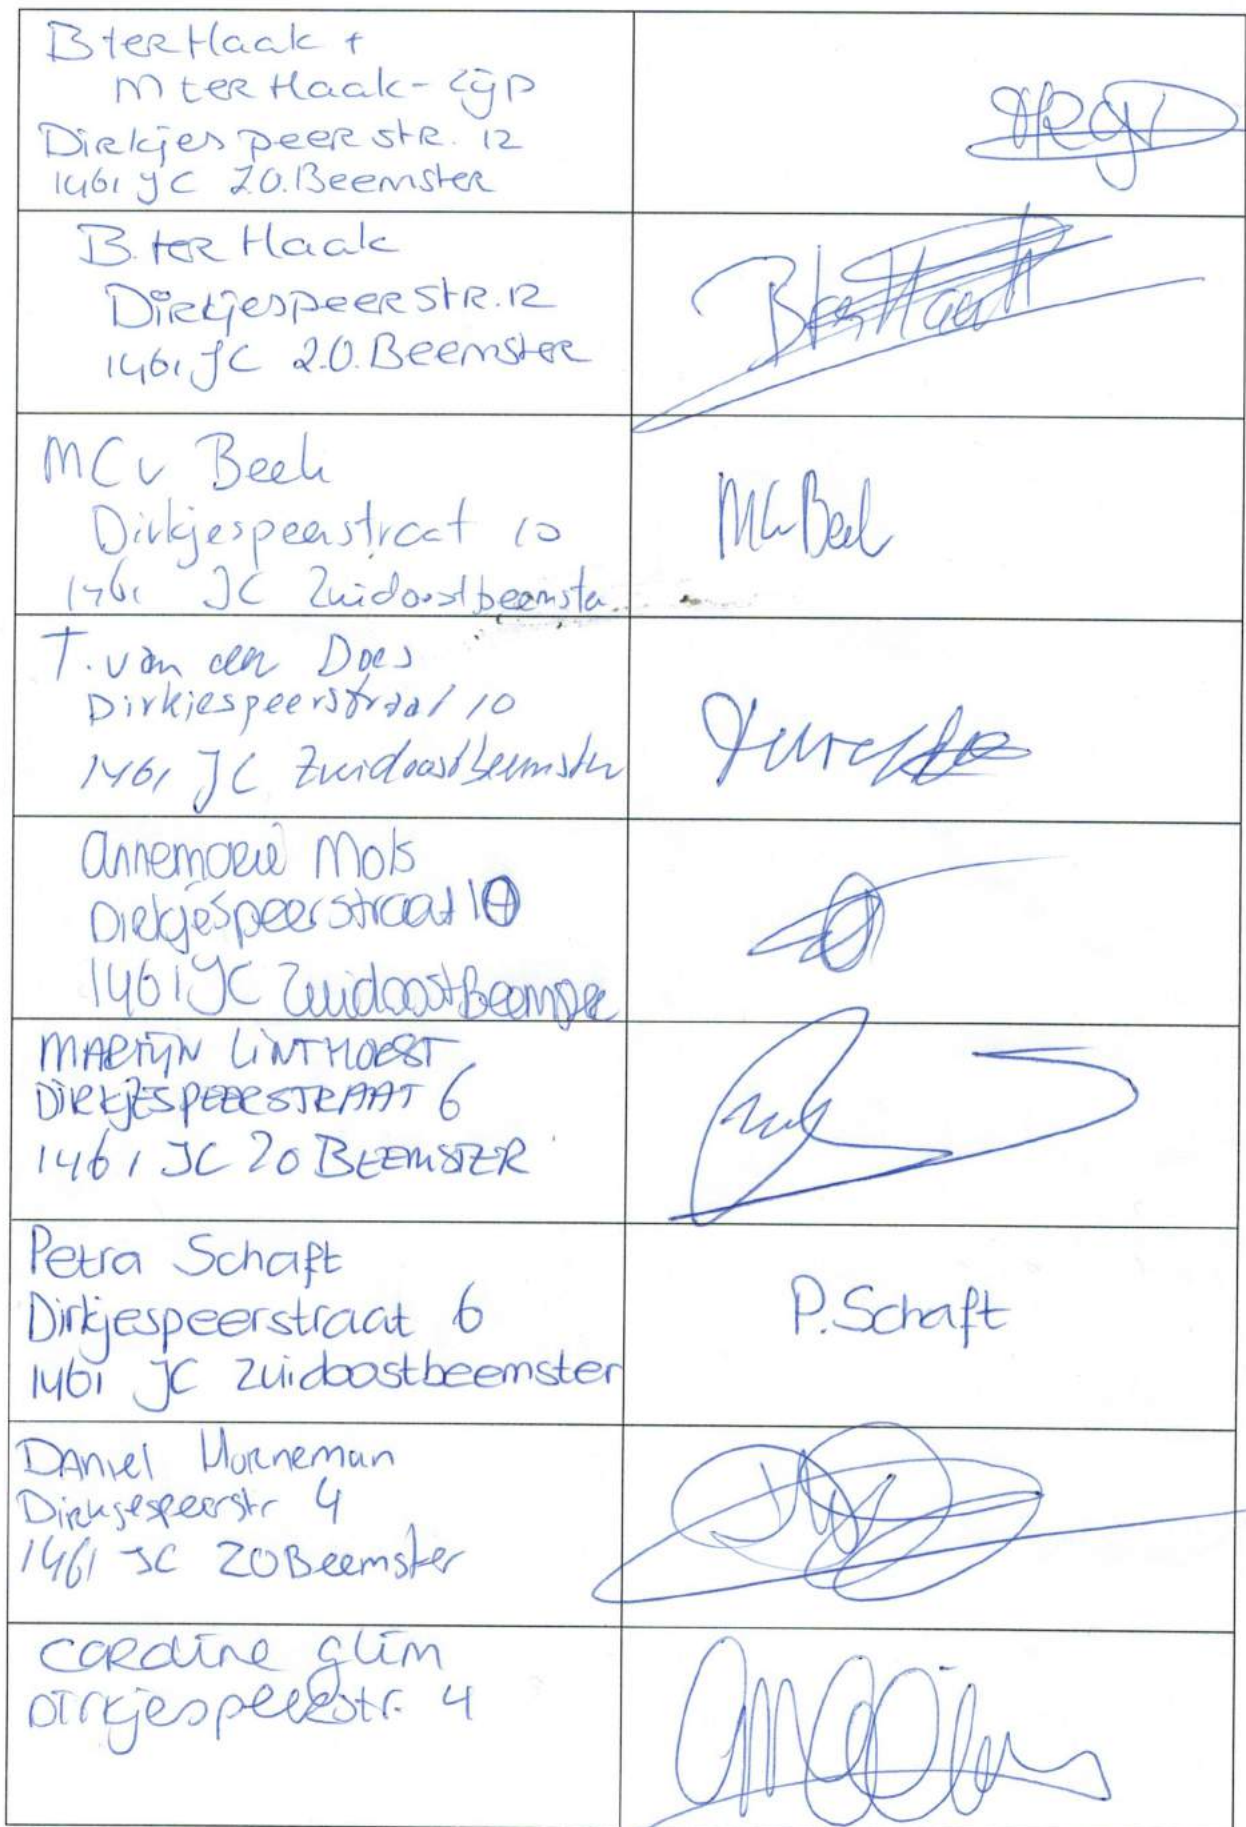 B ter Haak +
M ter Haak - Zijp
Dirkjes peer str. 12
1461 JC Z.O. Beemster
B. ter Haak
Dirkjespeer str. 12
1461 JC Z.O. Beemster
B ter Haak
MC v Beek
Dirkjespeerstraat 10
1461 JC Zuidoostbeemster
MCv Beek
T. van der Does
Dirkjespeerstraat 10
1461 JC Zuidoostbeemster
Annemarie Mols
Dirkjespeerstraat 10
1461 JC Zuidoostbeemster
MARTIJN LINTHORST
DIRKJESPEERSTRAAT 6
1461 JC ZO BEEMSTER
Petra Schaft
Dirkjespeerstraat 6
1461 JC Zuidoostbeemster
P. Schaft
Daniel Horneman
Dirkjespeerstr 4
1461 JC ZO Beemster
Caroline Glim
Dirkjespeerstr. 4